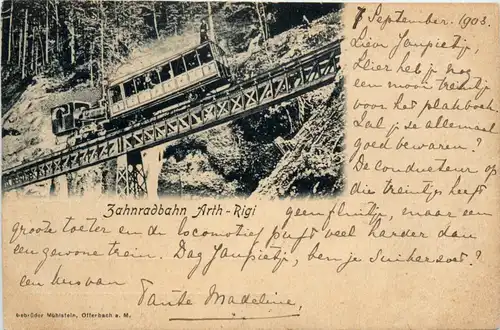 7 September. 1903.
Lieve Janpietje,
Hier heb je nog
een mooi treintje
voor het plakboek.
Zal je se allemaal
goed bewaren?
De conducteur op
die treintjes heeft
Zahnradbahn Arth-Rigi
geen fluitje, maar een
groote toeter en de locomotief puft veel harder dan
een gewone trein. Dag Janpietje, ben je Suikerzoet?
een kus van
Tante Madeline,
Gebrüder Mühlstein, Offenbach a. M.